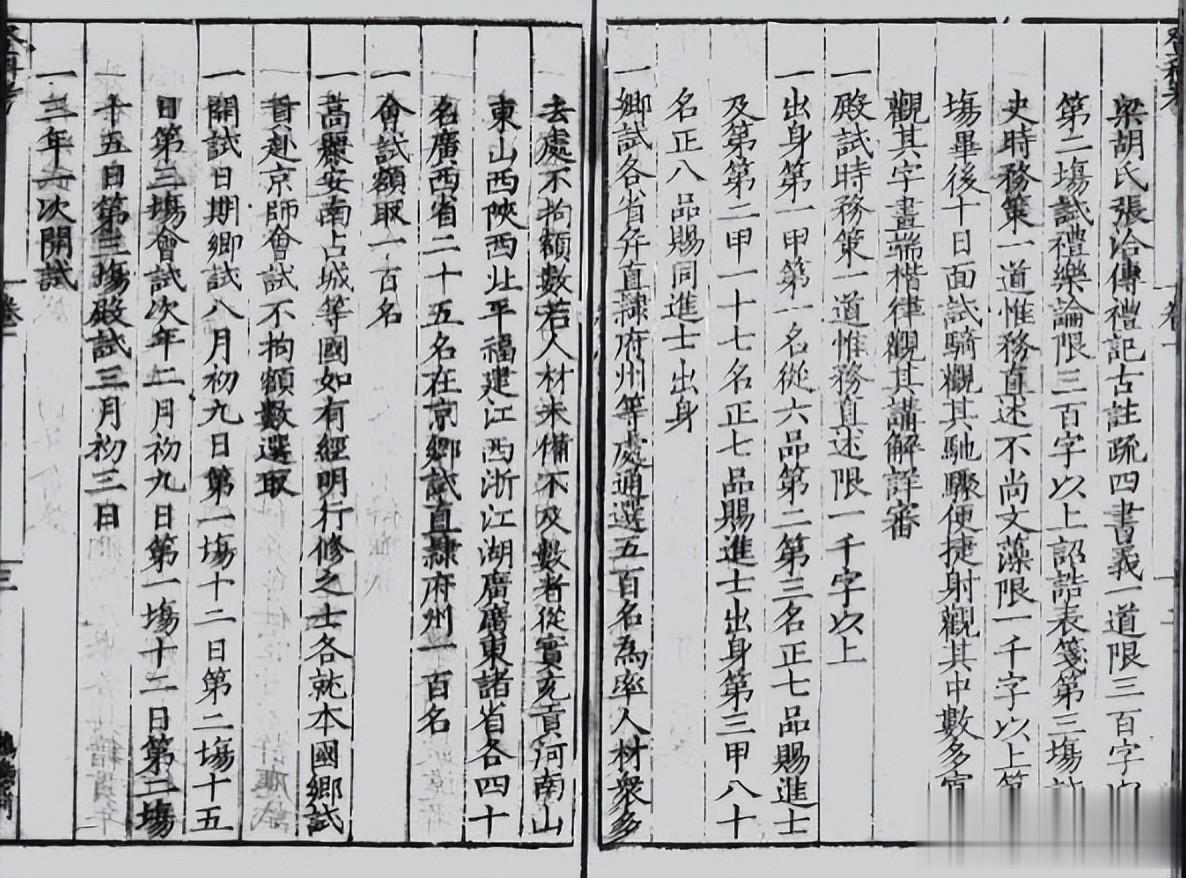 梁胡氏張洽傳禮記古註疏四書義一道限三百字以
第二塲試禮樂論限三百字以上詔誥表箋第三塲試
史時務策一道惟務直述不尚文藻限一千字以上第
塲畢後十日面試騎觀其馳驟便捷射觀其中數多寡
觀其字畫端楷律觀其講解詳審
一殿試時務策一道惟務直述限一千字以上
一出身第一甲第一名從六品第二第三名正七品賜進士
及第第二甲一十七名正七品賜進士出身第三甲八十
名正八品賜同進士出身
一鄉試各省并直隷府州等處通選五百名為率人材衆多
去處不拘額數若人材未備不及數者從實充貢河南山
東山西陝西北平福建江西浙江湖廣廣東諸省各四十
名廣西省二十五名在京鄉試直隷府州一百名
一會試額取一百名
一高麗安南占城等國如有經明行修之士各就本國鄉試
貢赴京師會試不拘額數選取
一開試日期鄉試八月初九日第一塲十二日第二塲十五
日第三塲會試次年二月初九日第一塲十二日第二塲
十五日第三塲殿試三月初三日
一三年一次開試
卷一
三